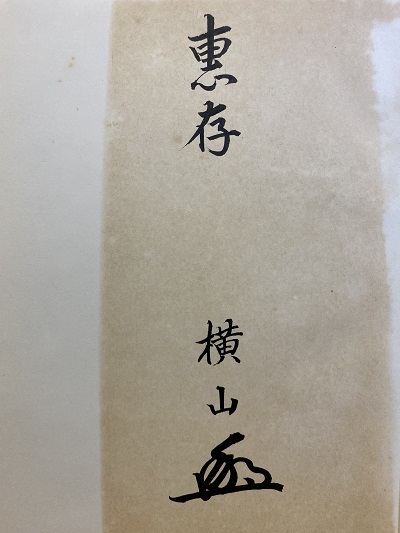 惠存
横山